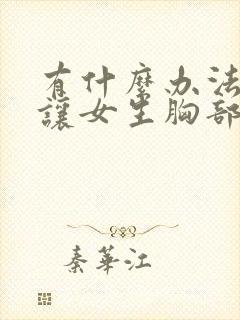 有什麽办法
讓女生胸部
秦華江